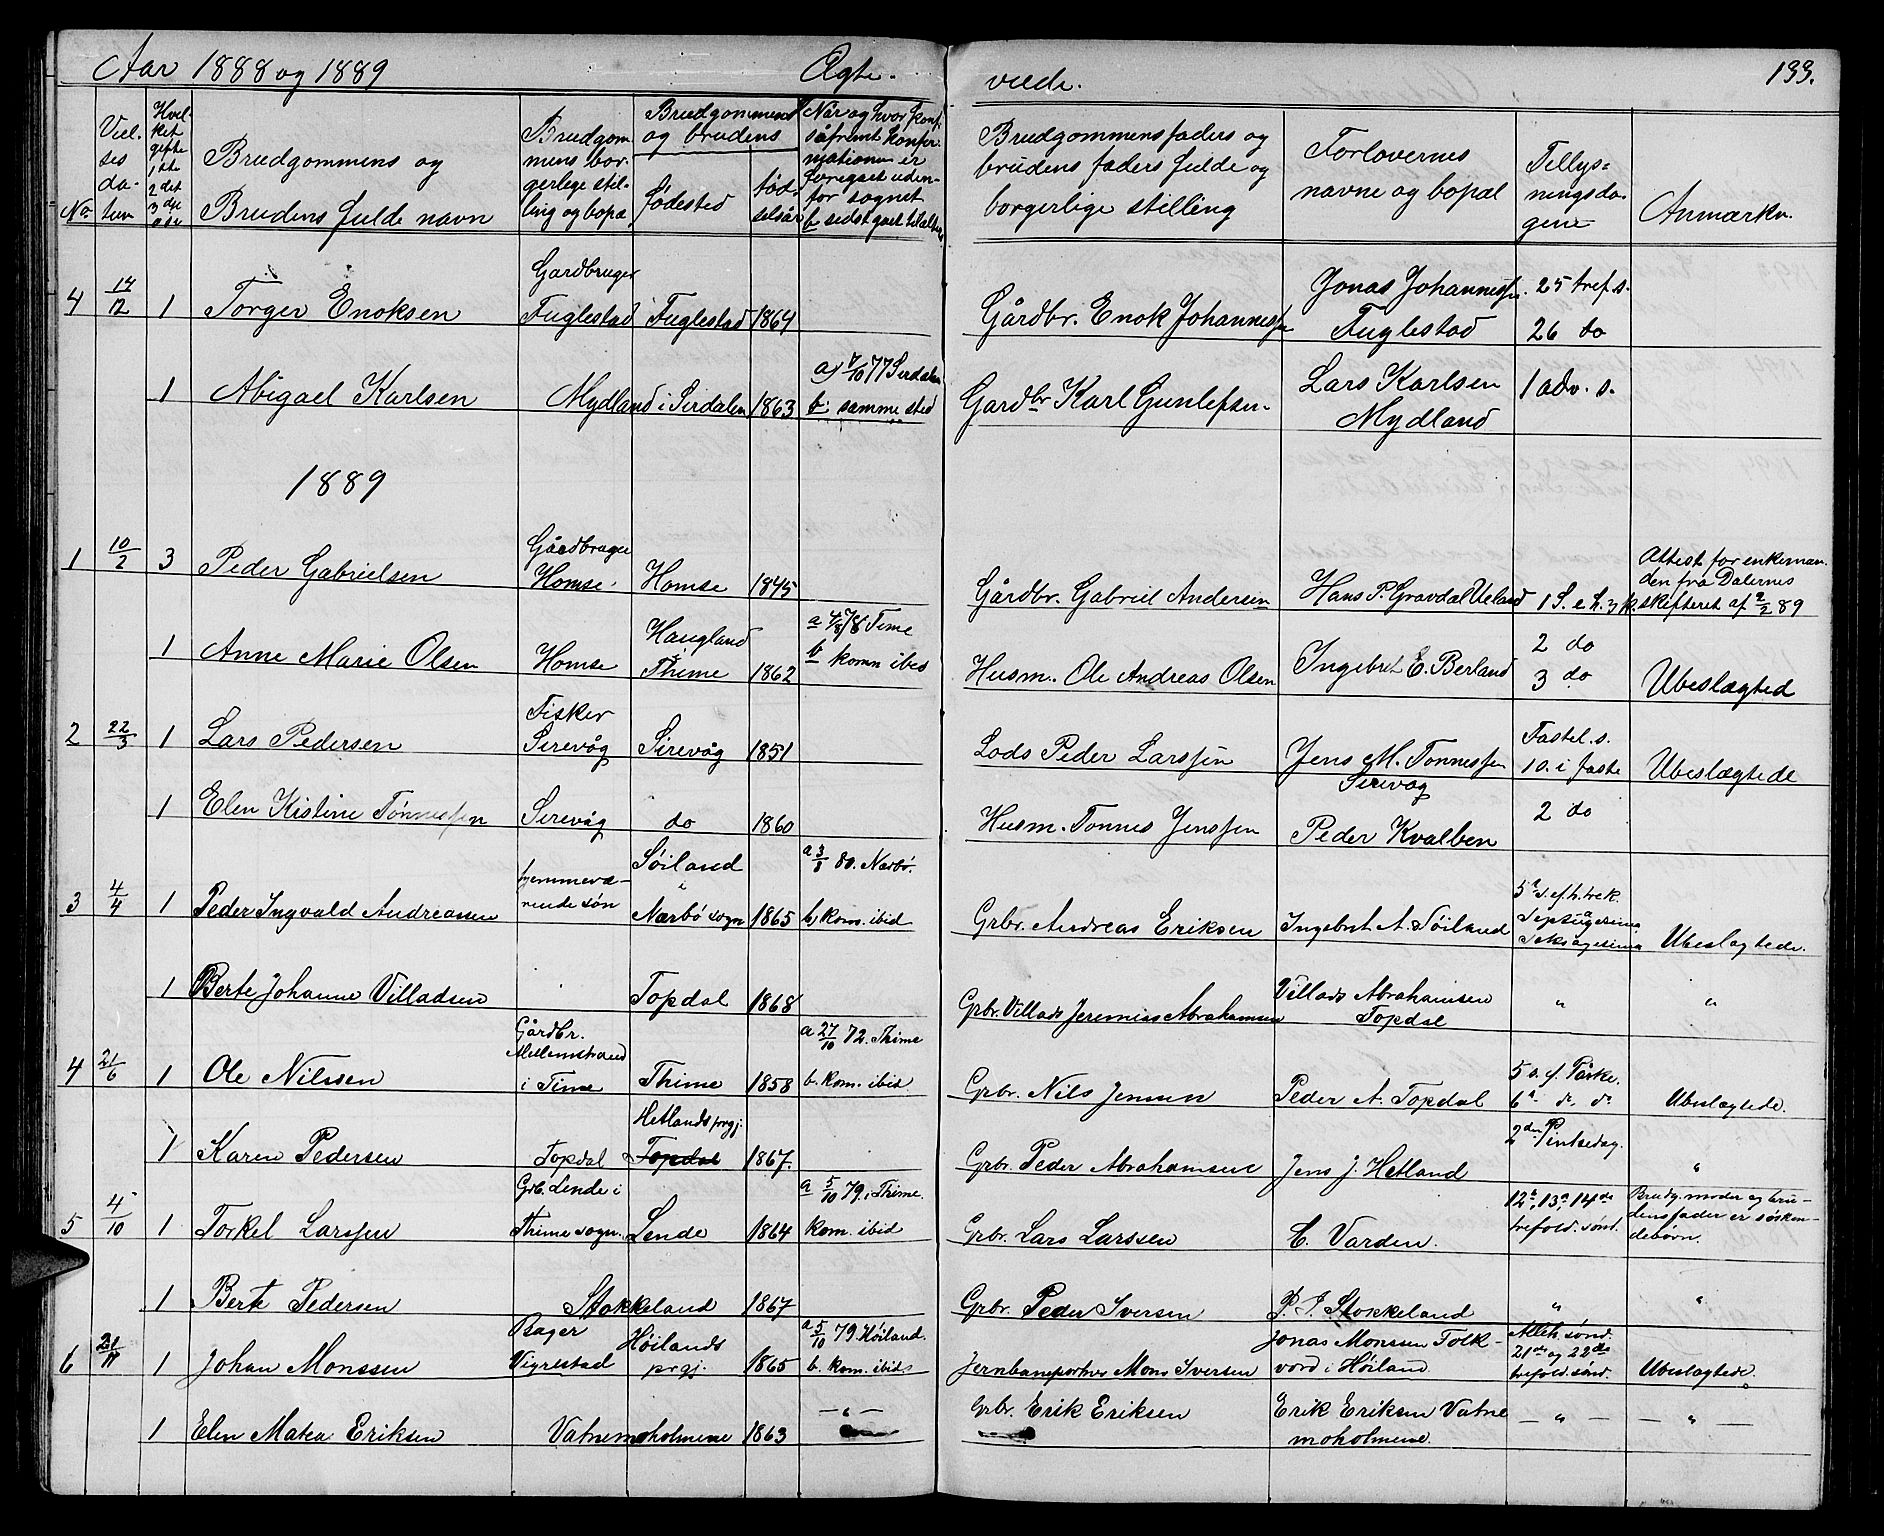 Aar 1888 og 1889 Ægte. viede. 133.
No. Viel-ses da-tum Hvil-ket gifte 1ste 2det 3die osv
Brudgommens og
Brudens fulde navn
Brudgom-
mens bor-
gerlige stil-
ling og bopæ
Brudgommens
og brudens
fødested
fød-
selsår
Når og hvor konf.
såfremt konfir-
mationen er
foregaaet uden-
for sognet
b sidst gaaet til alters
Brudgommens faders og
brudens faders fulde og
borgerlige stilling
Forlovernes
navne og bopæl
Tillys=
ningsda-
gene
Anmærkn.
4 14/12 1 Torger Enoksen Gardbruger Fuglestad Fuglestad 1864 Gårdbr. Enok Johannessen Jonas Johannessen Fuglestad 25 tref. s. 26 do
1 Abigael Karlsen Mydland i Sirdalen 1863 a) 7/10 77 Sirdalen b. samme sted Gardbr Karl Gunlefsen Lars Karlsen Mydland 1 adv. s.
1889
1 10/2 3 Peder Gabrielsen Gårdbruger Homse Homse 1845 Gårdbr. Gabriel Andersen Hans P. Gravdal Ueland 1 S. e h. 3 k. Attest for enkeman-den fra Dalernes skifteret af 2/2 89
1 Anne Marie Olsen Homse Haugland i Thime 1862 a 4/8 78 Time b komn ibid Husm. Ole Andreas Olsen Ingebret E. Berland 2 do 3 do Ubeslægted
2 22/3 1 Lars Pedersen Fisker Sirevåg Sirevåg 1851 Lods Peder Larssen Jens M. Tonnessen Sirevåg Fastel. s. 10. i faste Ubeslægtede
1 Elen Kistine Tönnessen Sirevåg do 1860 Husm. Tonnes Jenssen Peder Kvalben 2 do
3 4/4 1 Peder Ingvald Andreassen hjemmevæ-rende søn Søiland i Nærbö sogn 1865 a 3/8 80. Nærbö. b kom. ibid Grbr. Andreas Eriksen Ingebret A. Söiland 5te S ef. h. trek. Septuagesima Seksagesima Ubeslagtede.
1 Berte Johanne Villadsen Topdal 1868 Grbr. Villads Jeremias Abrahamsen Villads Abrahamsen Topdal " "
4 21/6 1 Ole Nilssen Gårdbr. Mellemstrand i Time Thime 1858 a 27/10 72. Thime b. kom. ibid. Grbr. Nils Jensen Peder A. Topdal 5 s. f. Påske. 6te d. d. Ubeslægtede.
1 Karen Pedersen Topdal Hetlands prgj. Topdal 1867. Grbr. Peder Abrahamsen Jens J. Hetland 2den Pintsedag. "
5 4/10 1 Torkel Larssen Grb. Lende i Thime sogn. Lende 1864 a 5/10 79. i Thime. kom. ibid Grbr. Lars Larssen C. Varden. 12te, 13de, 14de trefold. sönd. Brudg. moder og bru-densfader er sösken-debörn.
1 Berte Pedersen Stokkeland 1867 Grbr. Peder Iversen P. I. Stokkeland " "
6 21/11 1 Johan Monssen Bager Vigrestad Höilands prgj. 1865 a 5/10 79. Höiland. b. kom. ibid. Jernbaneportner Mons Iversen Jonas Monssen Folk-vord i Höiland Alleh. sönd. 21de og 22de trefold. sönd. Ubeslægtede.
1 Elen Matea Eriksen Vatnemoholmene 1863 —"— Grbr. Erik Eriksen Erik Eriksen Vatne moholmene. —"— —"—